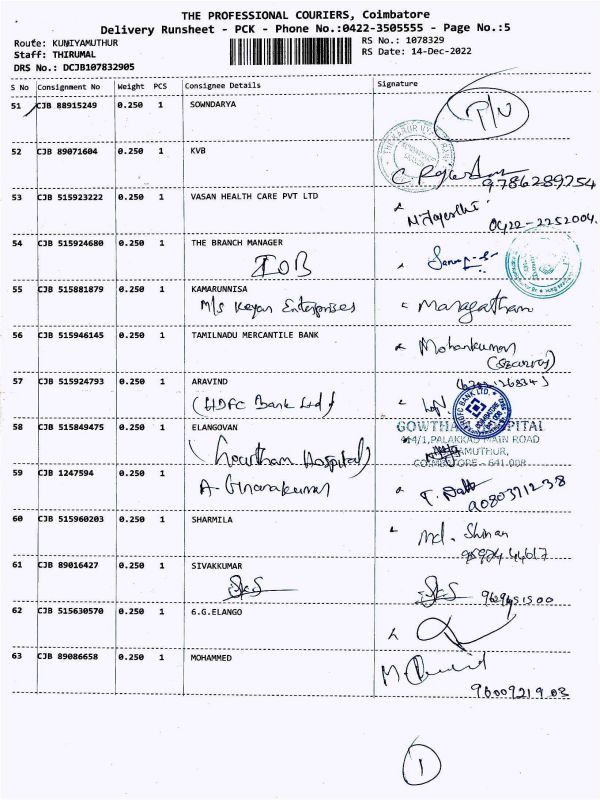 THE PROFESSIONAL COURIERS, Coimbatore
Delivery Runsheet - PCK - Phone No.:0422-3505555 - Page No.:5
Route: KUNIYAMUTHUR
Staff: THIRUMAL
DRS No.: DCJB107832905
RS No.: 1078329
RS Date: 14-Dec-2022
S No Consignment No Weight PCS Consignee Details Signature
51 CJB 88915249 0.250 1 SOWNDARYA
52 CJB 89071604 0.250 1 KVB
9786289754
53 CJB 515923222 0.250 1 VASAN HEALTH CARE PVT LTD
0422-2252004.
54 CJB 515924680 0.250 1 THE BRANCH MANAGER
IOB
55 CJB 515881879 0.250 1 KAMARUNNISA
M/s Keyan Enterprises Maragatham
56 CJB 515946145 0.250 1 TAMILNADU MERCANTILE BANK
Mohankumar
(Security)
57 CJB 515924793 0.250 1 ARAVIND
(HDFC Bank Ltd)
58 CJB 515849475 0.250 1 ELANGOVAN
(Gowtham Hospital)
GOWTHA PITAL
PALAKKAD MAIN ROAD
AMUTHUR,
COIMBATORE - 641 008
59 CJB 1247594 0.250 1
A. Gnanakumar
60 CJB 515960203 0.250 1 SHARMILA
61 CJB 89016427 0.250 1 SIVAKKUMAR
62 CJB 515630570 0.250 1 6.G.ELANGO
63 CJB 89086658 0.250 1 MOHAMMED
9600921903
1